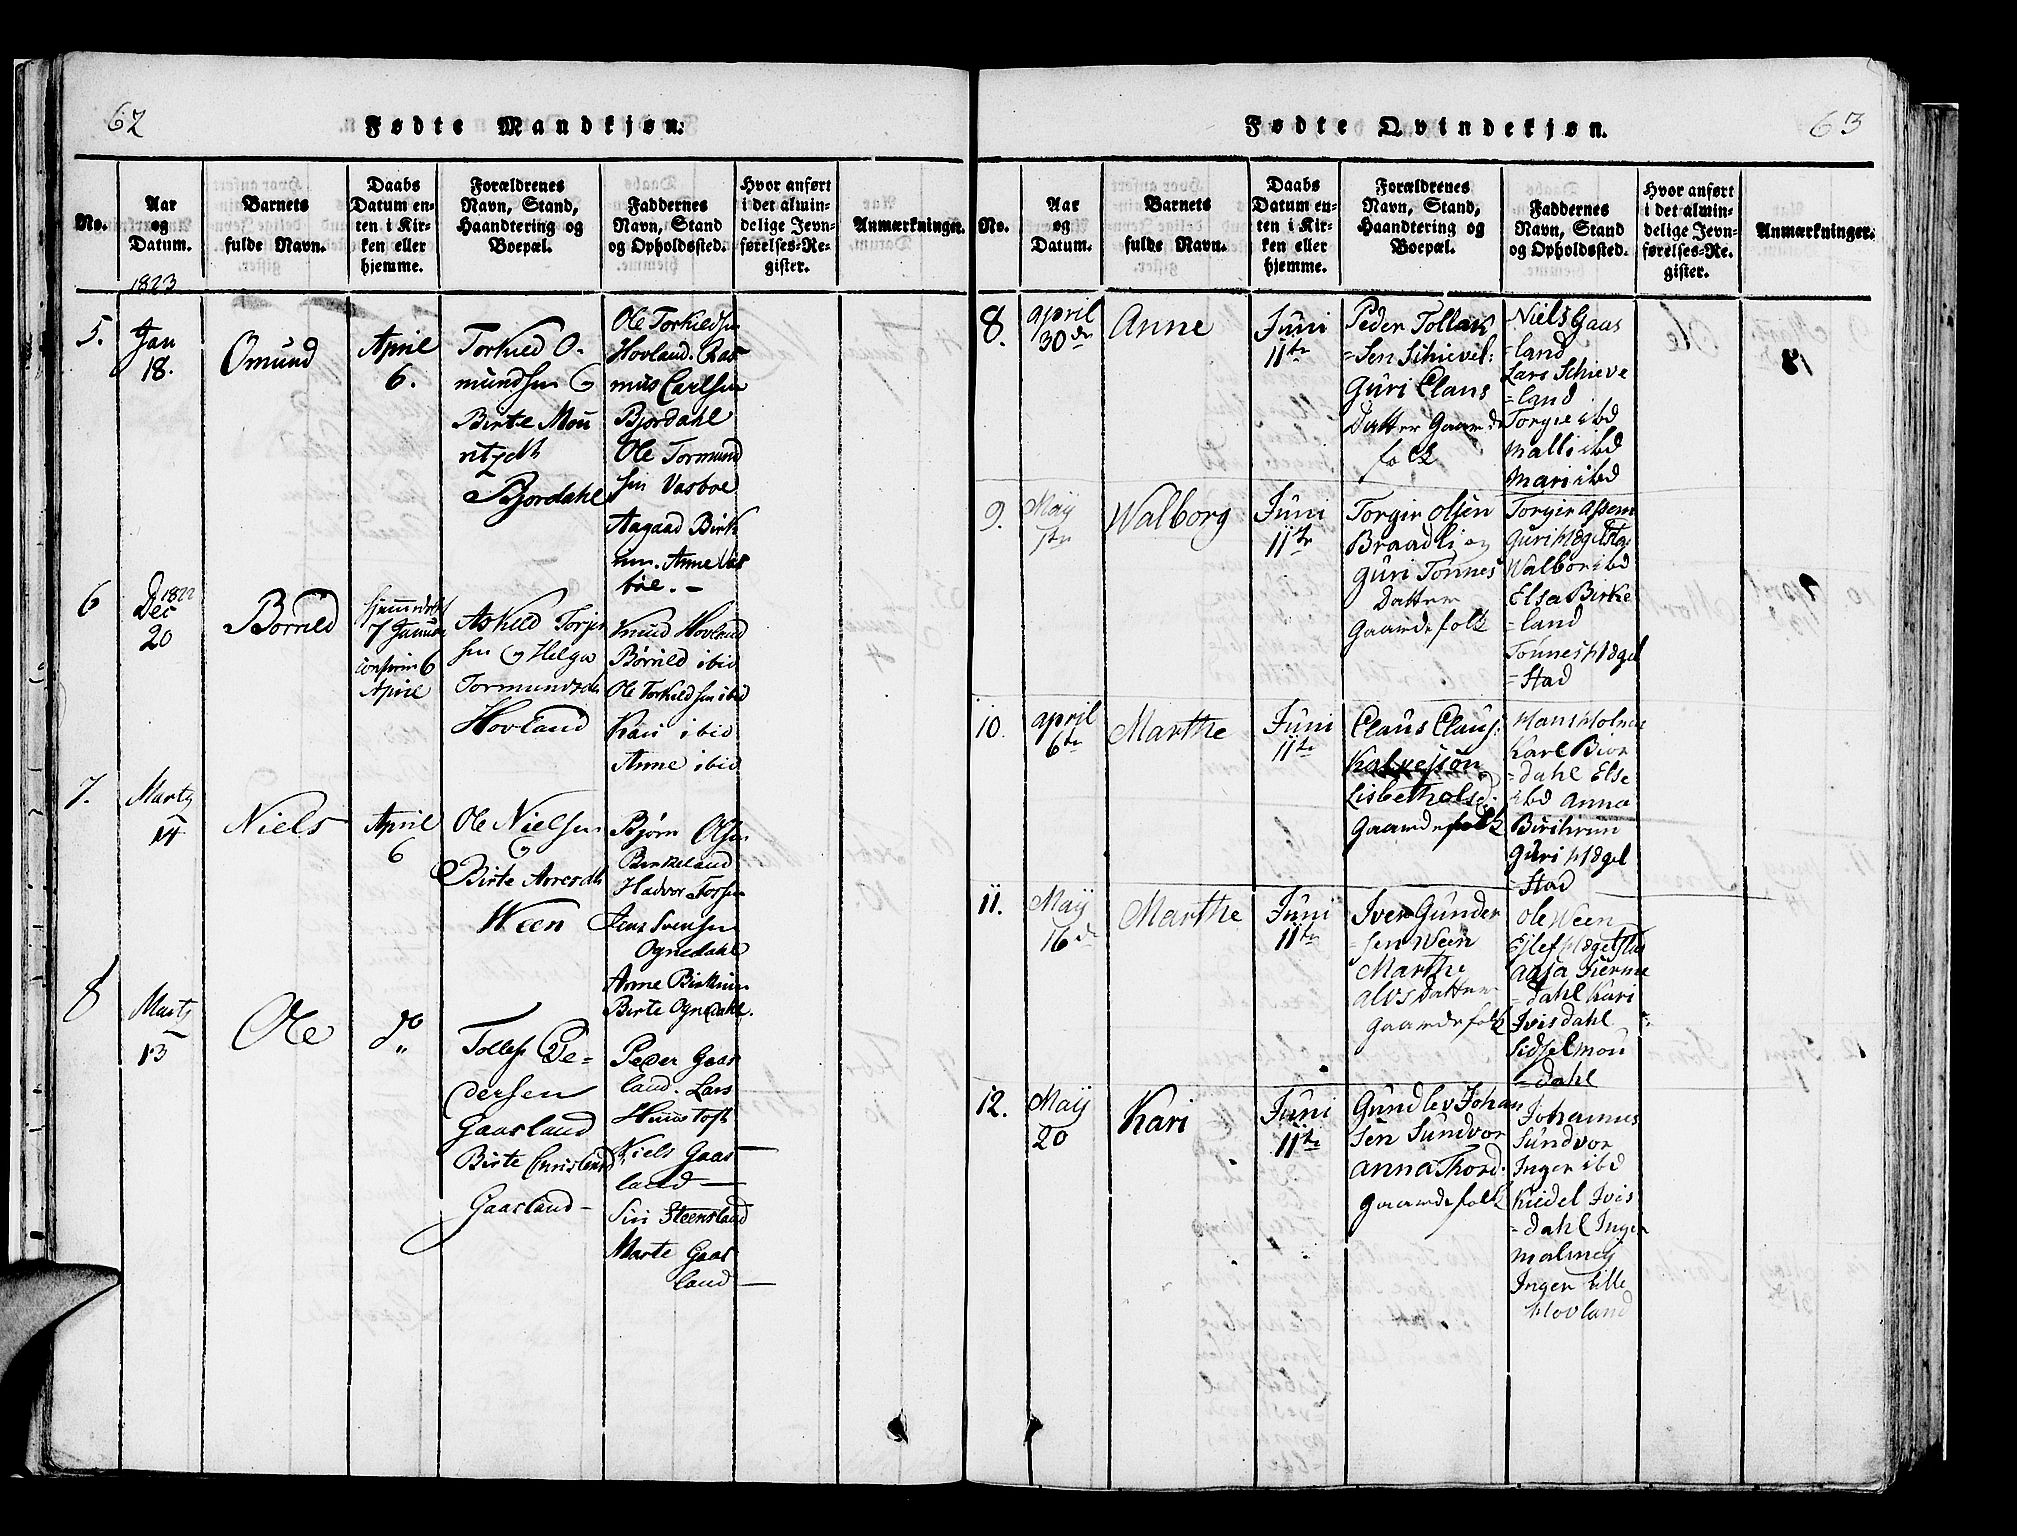 62
Fødte Mandkjøn.
No.
Aar
og
Datum.
Barnets
fulde Navn.
Daabs
Datum en-
ten i Kir-
ken eller
hjemme.
Forældrenes
Navn, Stand,
Haandtering og
Boepæl.
Faddernes
Navn, Stand
og Opholdssted.
Hvor anført
i det almin-
delige Jevn-
førelses-Re-
gister.
Anmærkninger.
1823
5.
Jan
18.
Omund
April
6.
Torkild O-
mundsen og
Birte Mou
ritzdtr
Bjordahl
Ole Torkildsen
Hovland. Ras
mus Carlsen
Bjordahl
Ole Tormund
sen Vasboe
Aagaad Birk
rem. Anne Vas
boe. -
6
1822
Dec
20
Borrild
7 Januar
6
April
Askild Torjer
sen og Helga
Tormundsdtr
Hovland
Knud Hovland
Børrild ibid
Ole Torkildsen ibid
Kari ibid
Anne ibid
7.
Marty
14
Niels
April
6
Ole Nielsen
og
Birte Arnesdtr
Ween
Bjørn Olsen
Birkeland
Hadvor Torsen
Jens Svensen
Ognedahl
Anne Birkrem
Birte Ognedahl.
8
Marty
13
Ole
do
Tollef Pe-
dersen
Gaasland
Birte Christensd
Gaasland -
Peder Gaas
land. Lars
Hustoft
Niels Gaas
land -
Siri Steensland
Marte Gaas
land -
63
Fødte Qvindekjøn.
No.
Aar
og
Datum.
Barnets
fulde Navn.
Daabs
Datum en-
ten i Kir-
ken eller
hjemme.
Forældrenes
Navn, Stand,
Haandtering og
Boepæl.
Faddernes
Navn, Stand
og Opholdssted.
Hvor anført
i det almin-
delige Jevn-
førelses-Re-
gister.
Anmærkninger.
8.
april
30de
Anne
Juni
11te
Peder Tollak
=sen Schievel:
Guri Claus
Datter Gaarde
folk
Niels Gaas
=land
Lars Schieve
=land
Torgie ibd
Malli ibd
Mari ibd
9.
Maÿ
1te
Walborg
Juni
11te
Torgir Olsen
Braadli og
Guri Tønnes
Datter
Gaardefolk
Torgir Assem
Guri Hægelsta
Walbor ibd
Elsa Birke
=land
Tønnes Hægel
=stad
10.
april
6te
Marthe
Juni
11te
Claus Claus:
Lisbeth Olsd:
Gaardefolk
Hans Holmen
Karl Bior
=dahl Else
ibd Anna
Birchrem
Guri Hægel
=stad
11.
Maÿ
16de
Marthe
Juni
11te
Iver Gunder
=sen Ween
Marthe
Alvs Datter
Gaardefolk
Ole Ween
Ejlef Hægelsta
Aasa Tierne
=dahl Kari
Ivisdahl
Sidsel Mou
=dahl
12.
Maÿ
20
Kari
Juni
11te
Gundlev Johan
sen Sundvor
Anna Thord:
Gaardefolk
Johannes
Sundvor
Inger ibd
Kiedel Ivis
=dahl Inger
Malmeÿ
Inger Lille
Hovland